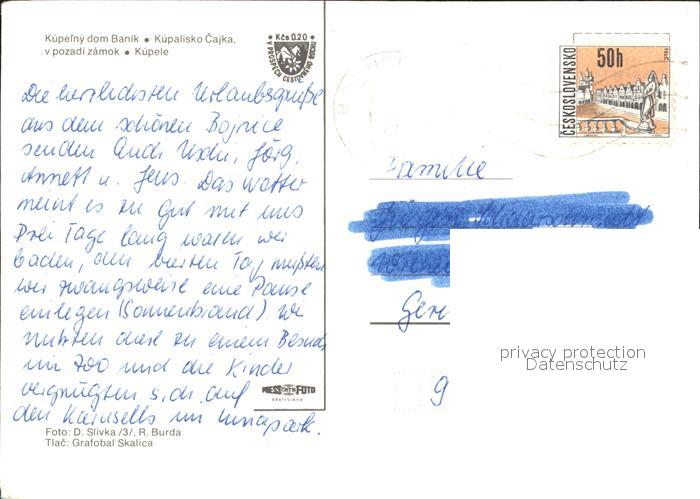 Kúpeľný dom Baník • Kúpalisko Čajka,
v pozadí zámok • Kúpele
Kčs 0.20
V PROSPECH CESTOVNÉHO RUCHU
ČESKOSLOVENSKO
50h
Die herzlichsten Urlaubsgrüße
aus dem schönen Bojnice
senden Euch Jörg,
Annett u. Jens. Das Wetter
meint es zu gut mit uns
Drei Tage lang waren wir
baden, den vierten Tag mußten
wir zwangsweise eine Pause
einlegen (Sonnenbrand). Wir
nutzten diese zu einem Besuch
im Zoo und die Kinder
vergnügten sich auf
den Karusells im Lunapark.
Familie
Ger
9
privacy protection
Datenschutz
PRESSFOTO
BRATISLAVA
Foto: D. Slivka /3/, R. Burda
Tlač: Grafobal Skalica